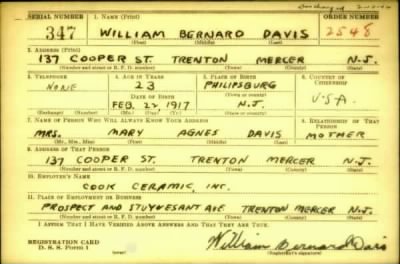 SERIAL NUMBER 1. NAME (Print) ORDER NUMBER
347 WILLIAM BERNARD DAVIS 2548
(First) (Middle) (Last)
2. ADDRESS (Print)
137 COOPER ST. TRENTON MERCER N.J.
(Number and street or R. F. D. number) (Town) (County) (State)
3. TELEPHONE 4. AGE IN YEARS 5. PLACE OF BIRTH 6. COUNTRY OF CITIZENSHIP
NONE 23 PHILIPSBURG U.S.A.
DATE OF BIRTH (Town or county)
FEB. 22, 1917 N.J.
(Exchange) (Number) (Mo.) (Day) (Yr.) (State or country)
7. NAME OF PERSON WHO WILL ALWAYS KNOW YOUR ADDRESS 8. RELATIONSHIP OF THAT PERSON
MRS. MARY AGNES DAVIS MOTHER
(Mr., Mrs., Miss) (First) (Middle) (Last)
9. ADDRESS OF THAT PERSON
137 COOPER ST. TRENTON MERCER N.J.
(Number and street or R. F. D. number) (Town) (County) (State)
10. EMPLOYER'S NAME
COOK CERAMIC, INC.
11. PLACE OF EMPLOYMENT OR BUSINESS
PROSPECT AND STUYVESANT AVE TRENTON MERCER N.J.
(Number and street or R. F. D. number) (Town) (County) (State)
I AFFIRM THAT I HAVE VERIFIED ABOVE ANSWERS AND THAT THEY ARE TRUE.
REGISTRATION CARD
D. S. S. Form 1 William Bernard Davis
(Registrant's signature)